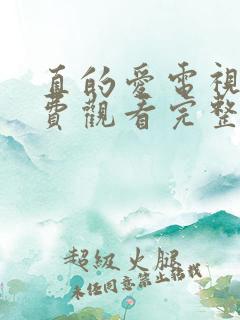 直的愛電視
費觀看完整
超級火腿
未经同意禁止转载